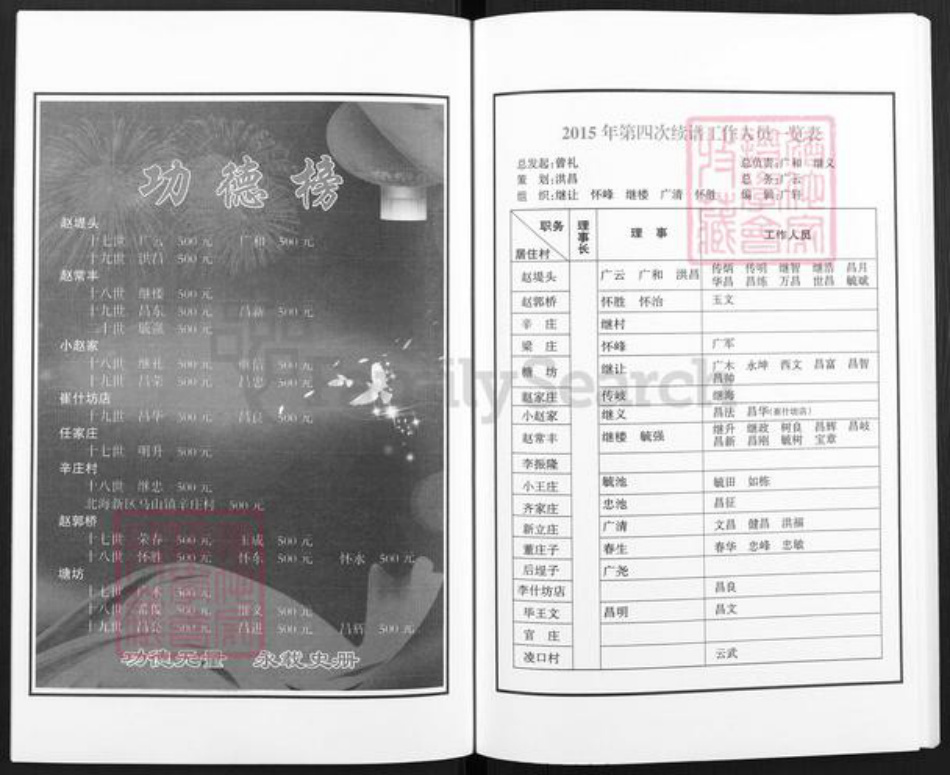 功德榜
赵堤头
十七世 广云 500元 广和 500元
十九世 洪昌 500元
赵常丰
十八世 继楼 500元
十九世 昌东 500元 昌新 500元
二十世 毓强 500元
小赵家
十八世 继礼 500元 500元
十九世 昌荣 500元 昌忠 500元
崔什坊店
十九世 昌华 500元 昌良 500元
任家庄
十七世 明升 500元
辛庄村
十八世 继忠 500元
北海新区马山镇辛庄村 500元
赵郭桥
十七世 荣春 500元 玉成 500元
十八世 怀胜 500元 怀东 500元 怀水 500元
塘坊
十七世 500元
十八世 500元 继义 500元
十九世 500元 昌进 500元 昌辉 500元
功德无量 永载史册
2015年第四次续谱工作人员一览表
总发起:曾礼 总负责:广和 继义
策 划:洪昌 总 务:广云
组 织:继让 怀峰 继楼 广清 怀胜 编 辑:广轩
职务 居住村 理事长 理 事 工作人员
赵堤头 广云 广和 洪昌 传炳 传明 继智 继浩 昌月
华昌 昌练 万昌 世昌 毓斌
赵郭桥 怀胜 怀治 玉文
辛 庄 继村
梁 庄 怀峰 广军
糖 坊 继让 广木 永坤 西文 昌富 昌智
昌帅
赵家庄 传岐 继海
小赵家 继义 昌法 昌华(崔什坊店)
赵常丰 继楼 毓强 继升 继政 树良 昌辉 昌岐
昌新 昌刚 毓树 宝章
李振隆
小王庄 毓池 毓田 如栋
齐家庄 忠池 昌征
新立庄 广清 文昌 健昌 洪福
董庄子 春生 春华 忠峰 忠敏
后堤子 广尧
李什坊店 昌良
毕王文 昌明 昌文
官 庄
凌口村 云武
FamilySearch